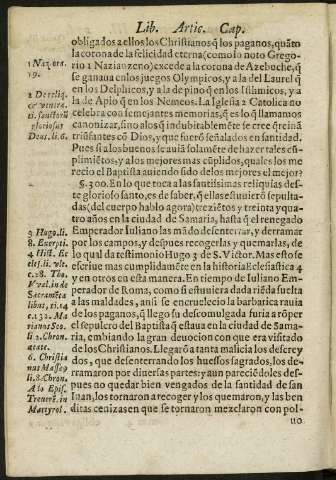 Lib. Artic. Cap.
obligados a ellos los Christianos q̃ los paganos, quãto
la corona de la felicidad eterna (como lo noto Grego-
rio 1 Nazianzeno) excede a la corona de Azebuche, q̃
se ganaua en los juegos Olympicos, y a la del Laurel q̃
en los Delphicos, y a la de pino q̃ en los Istimicos, y a
la de Apio q̃ en los Nemeos. La Iglesia 2 Catolica no
celebra con semejantes memorias, q̃ es lo q̃ llamamos
canonizar, sino a los q̃ indubitablemẽte se cree q̃ reinã
triũfantes cõ Dios, y que fuerõ señalados en santidad.
Pues si a los buenos se auia solamẽte de hazer tales cũ-
plimiẽtos, y a los mejores mas cũplidos, quales los me
recio el Baptista auiendo sido de los mejores el mejor?
§. 300. En lo que toca a las santissimas reliquias des-
te glorioso santo, es de saber, q̃ ellas estuuierõ sepulta-
das (del cuerpo hablo agora) trezientos y treinta y qua-
tro años en la ciudad de Samaria, hasta q̃ el renegado
Emperador Iuliano las mãdo desenterrar, y derramar
por los campos, y despues recogerlas y quemarlas, de
lo qual da testimonio Hugo 3 de S. Victor. Mas esto se
escriue mas cumplidamẽte en la historia Eclesiastica 4
y en otros cõ esta manera. En tiempo de Iuliano Em-
perador de Roma, como si estuuiera dada riẽda suelta
a las maldades, ansi se encruelecio la barbarica rauia
de los paganos, q̃ llego su descomulgada furia a rõper
el sepulcro del Baptista q̃ estaua en la ciudad de Sama-
ria, embiando la gran deuocion con que era visitado
de los Christianos. Llegarõ a tanta malicia los descrey
dos, que desenterrando los huessos sagrados, los de-
rramaron por diuersas partes: y aun pareciẽdoles des-
pues no quedar bien vengados de la santidad de san
Iuan, los tornaron a recoger y los quemaron, y las ben
ditas cenizas en que se tornaron mezclaron con pol-
uo
1 Naz. ora.
19.
2 De reliq.
& venera.
ti. sanctorũ
gloriosus
Deus. li. 6.
3 Hugo. li.
8. Excepti.
4 Hist. Ec
cles. li. vlt.
c. 28. Tho.
Vval. in de
Sacramẽta
libus, ti. 14
c. 132. Ma
rianus Sco
li. 2. Chron.
aetate.
6. Christia
nus Massęo
li. 8. Chron.
A lo Epis.
Treuerẽ. in
Martyrol.